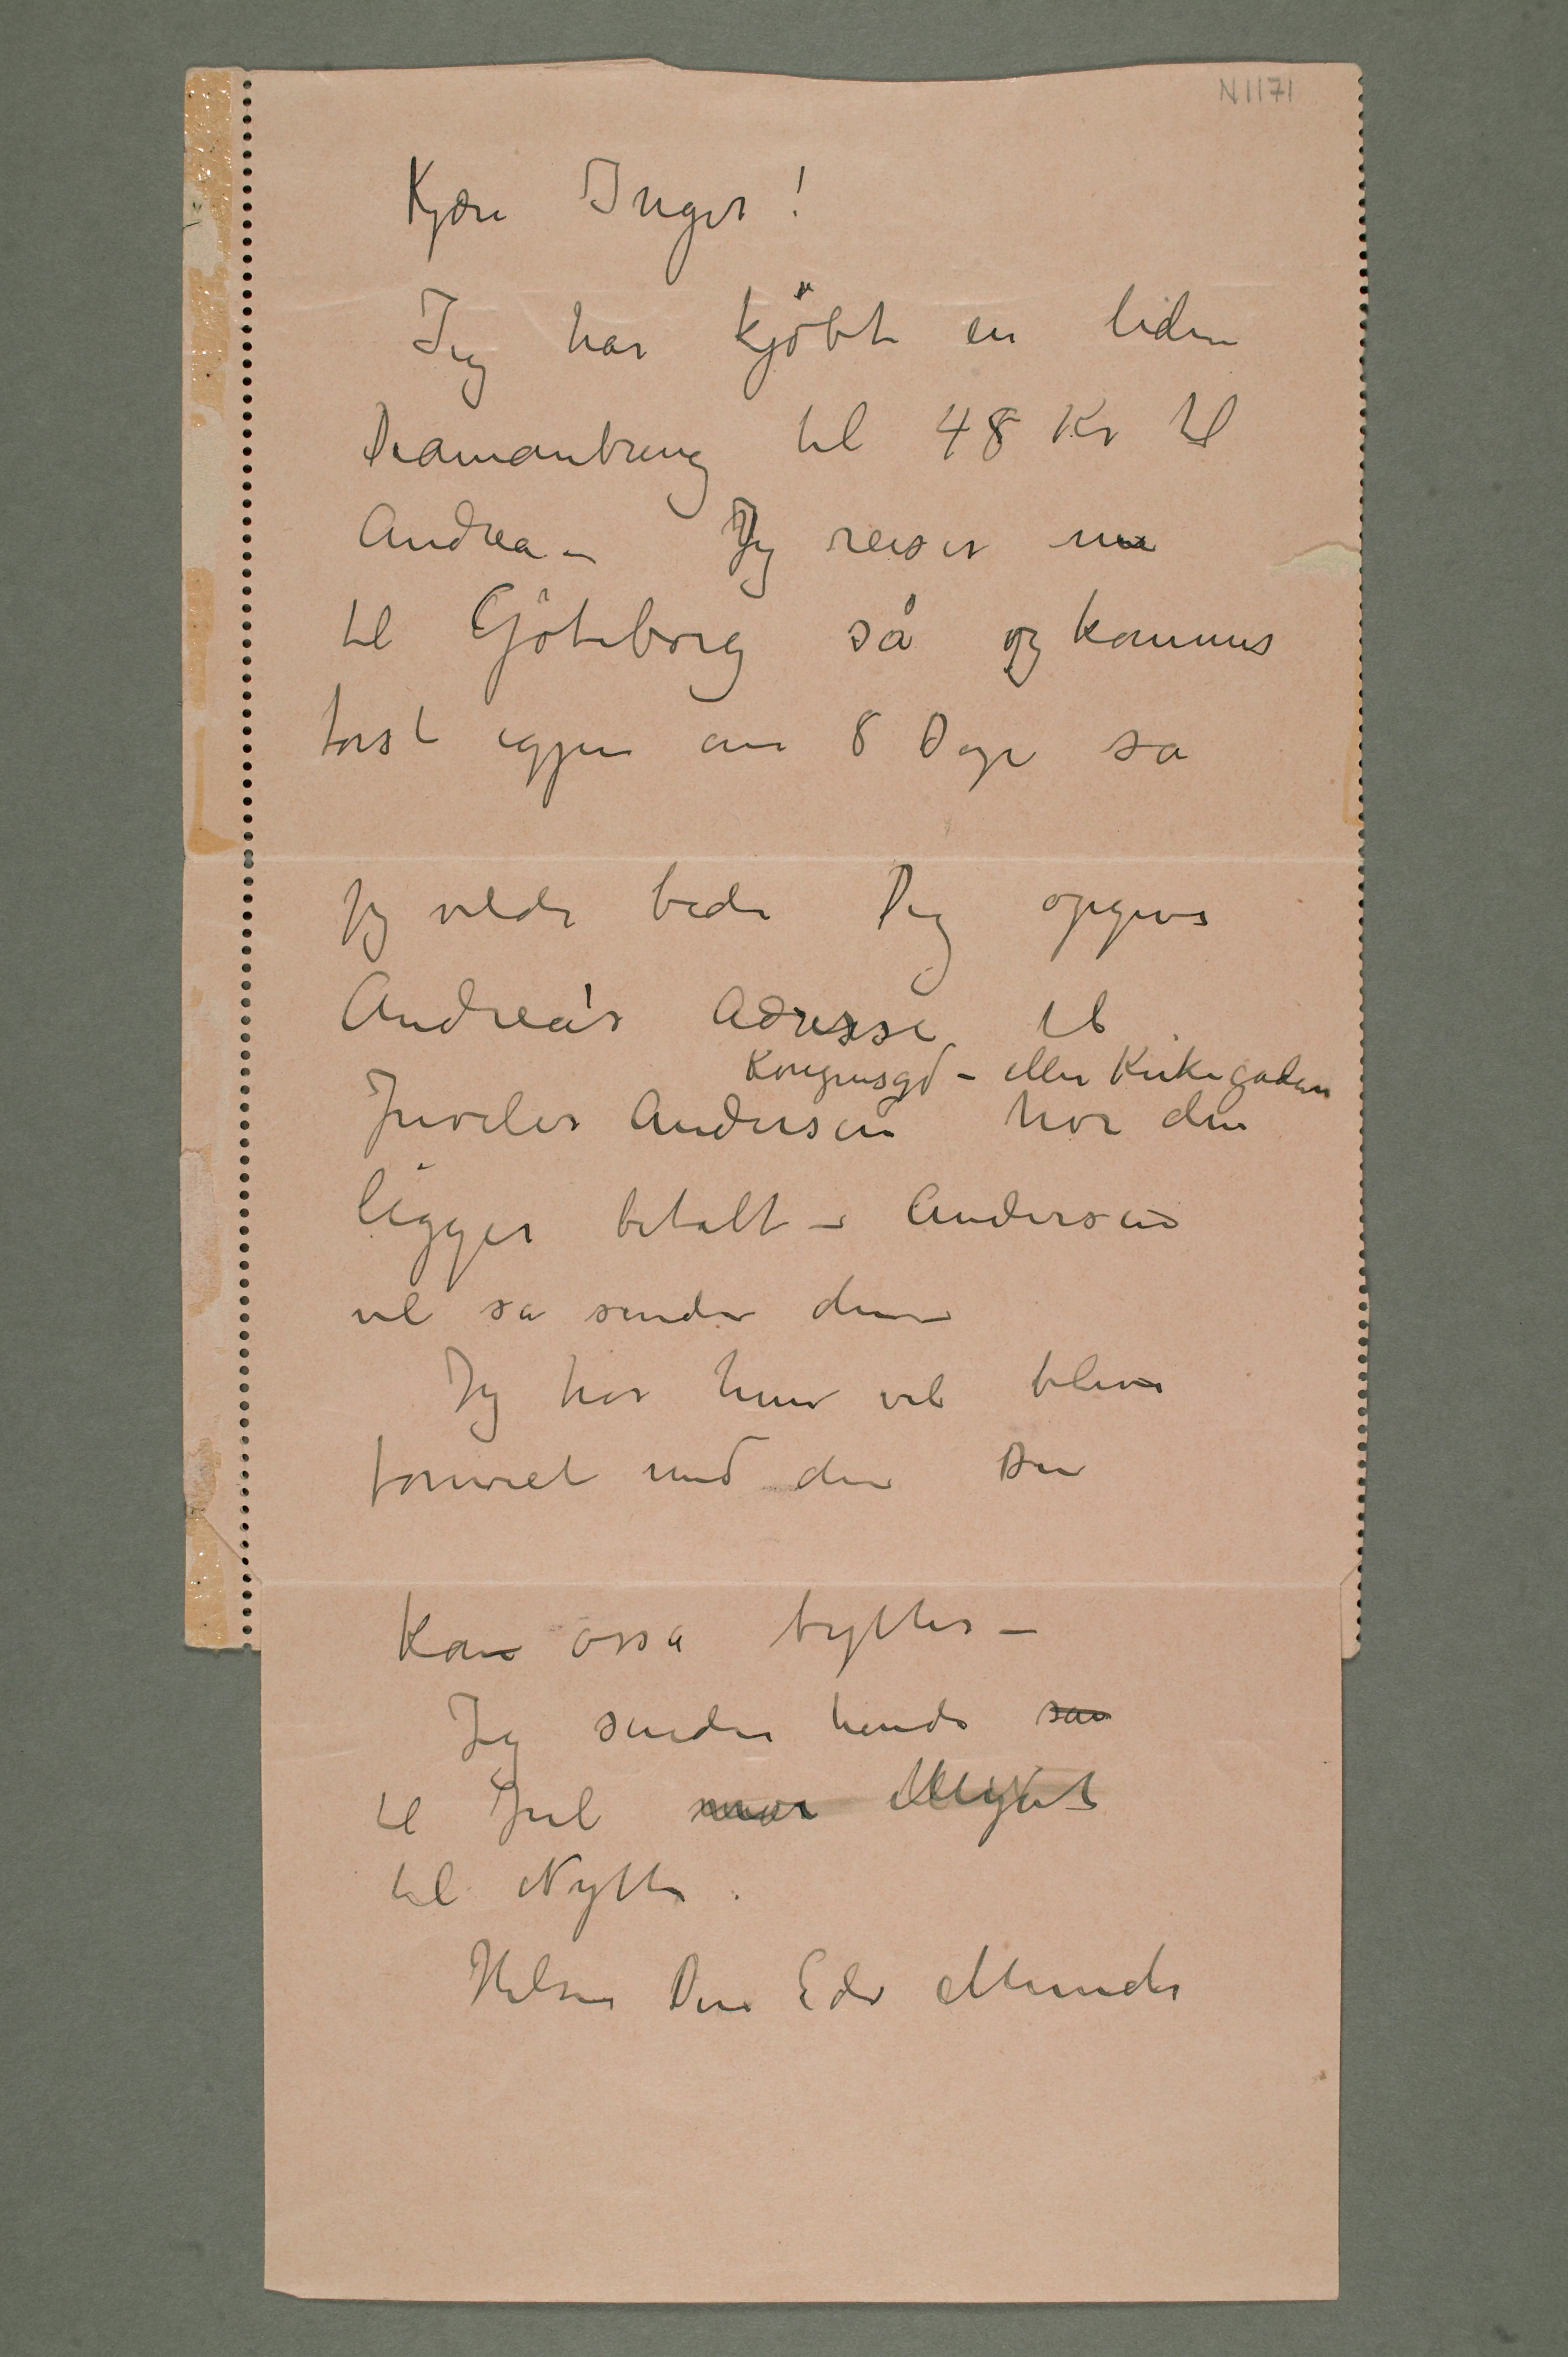 N 1171
Kjære Inger!
Jeg har kjöbt en liden
Diamantring til 48 Kr til
Andrea – Jeg reiser nu
til Göteborg så og kommer
først igjen om 8 Dage så
jeg vilde bede Dig opgive
Andrea's Adresse til
Kongensgd – eller Kirkegaden
Juveler Andersen hvor den
ligger betalt – Andersen
vil så sende den
Jeg tror hun vil blive
fornøiet med den Den
kan også byttes –
Jeg sender hende
til Jul
til Nytte.
Hilsen Din Edv Munch